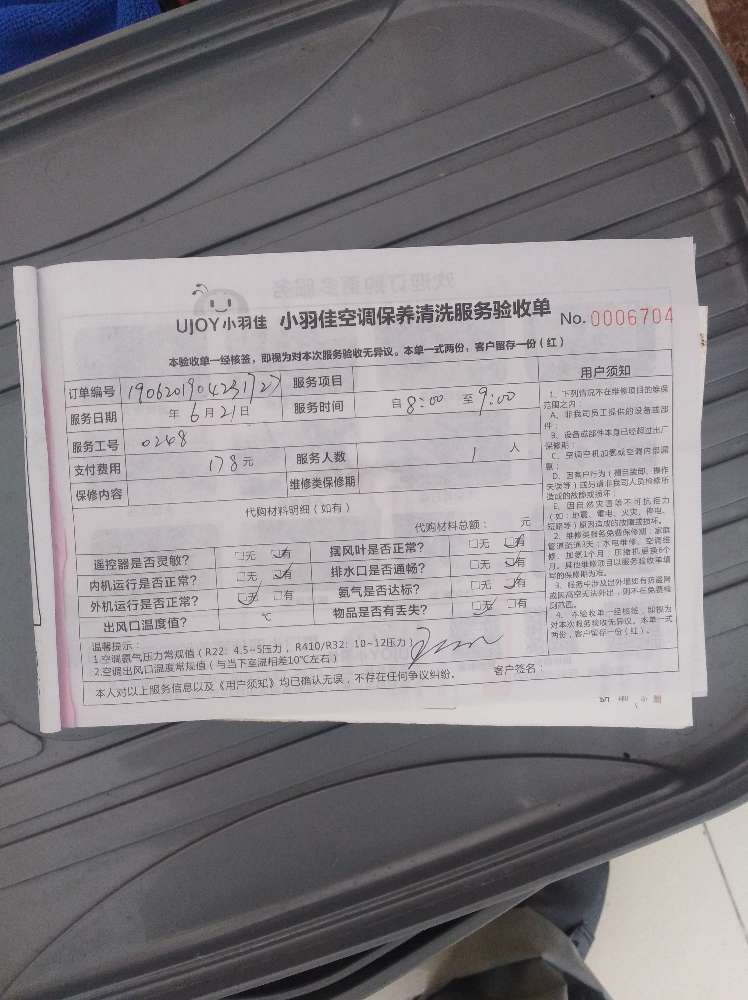 UJOY小羽佳 小羽佳空调保养清洗服务验收单 No. 0006704
本验收单一经核签，即视为对本次服务验收无异议。本单一式两份，客户留存一份（红）
订单编号 1906201904231727 服务项目
服务日期 年 6 月 21 日 服务时间 自 8:00 至 9:00
服务工号 0248
支付费用 178 元 服务人数 1 人
保修内容 维修类保修期
代购材料明细（如有）
代购材料总额： 元
遥控器是否灵敏？ □无 □有 摆风叶是否正常？ □无 □有
内机运行是否正常？ □无 □有 排水口是否通畅？ □无 □有
外机运行是否正常？ □无 □有 氨气是否达标？ □无 □有
出风口温度值？ ℃ 物品是否有丢失？ □无 □有
温馨提示：
1.空调氨气压力常规值（R22：4.5~5压力，R410/R32：10~12压力）
2.空调出风口温度常规值（与当下室温相差10℃左右）
本人对以上服务信息以及《用户须知》均已确认无误，不存在任何争议纠纷。 客户签名：
用户须知
1、下列情况不在维修项目的维保
范围之内：
A、非我司员工提供的设备或部
件；
B、设备或部件本身已经超过出厂
保修期；
C、空调空机加氨或空调内部漏
氨；
D、因客户行为（擅自装卸、操作
失误等）或另请非我司人员检修所
造成的故障或损坏；
E、因自然灾害等不可抗拒力
（如：地震、雷电、火灾、停电、
短路等）原因造成的故障或损坏。
2、维修类服务免费保修期：家庭
管道疏通3天；水电维修、空调维
修、加氨1个月，压缩机更换6个
月。其他维修项目以服务验收单填
写的保修期为准。
3、任务中涉及出外墙如有防盗网
或因高空无法外出，则不在免费检
测范围。
4、本验收单一经核签，即视为
对本次服务验收无异议。本单一式
两份，客户留存一份（红）。